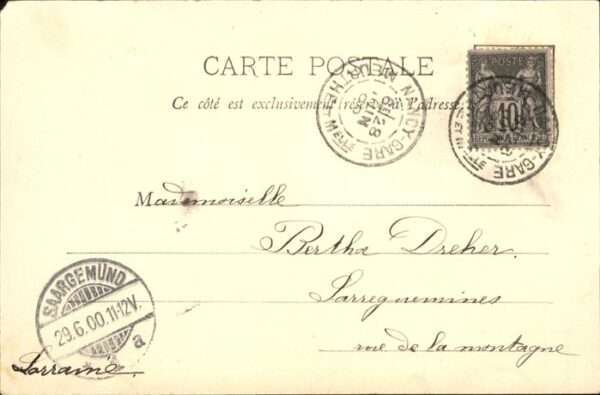 CARTE POSTALE
POSTE
10
Ce côté est exclusivement réservé à l'adresse
NANCY-GARE
28 JUIN
00
MEURTHE ET Mlle
NCY-GARE
Mademoiselle
Berthe Dreher
Sarreguemines
rue de la montagne
Lorraine
SAARGEMÜND
29.6.00.11-12V.
a